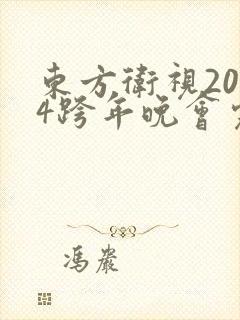 東方衛視20
4跨年晚會
馮嚴